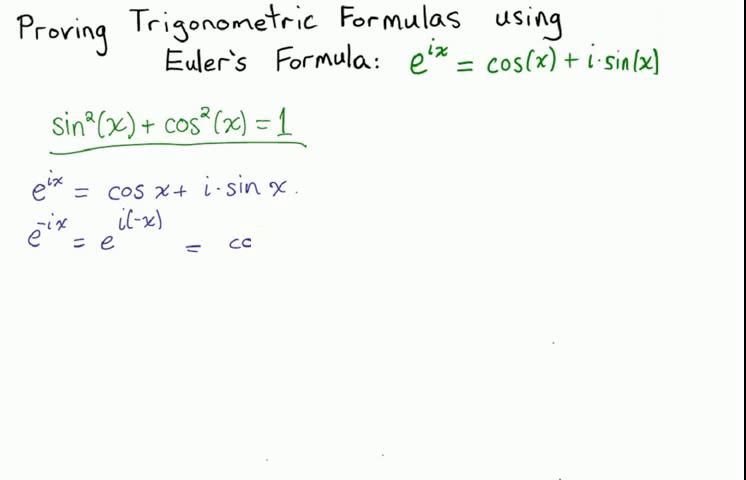 Proving Trigonometric Formulas using
Euler's Formula: e^{ix} = cos(x) + i·sin(x)
sin²(x) + cos²(x) = 1
e^{ix} = cos x + i·sin x.
e^{-ix} = e^{i(-x)} = cc